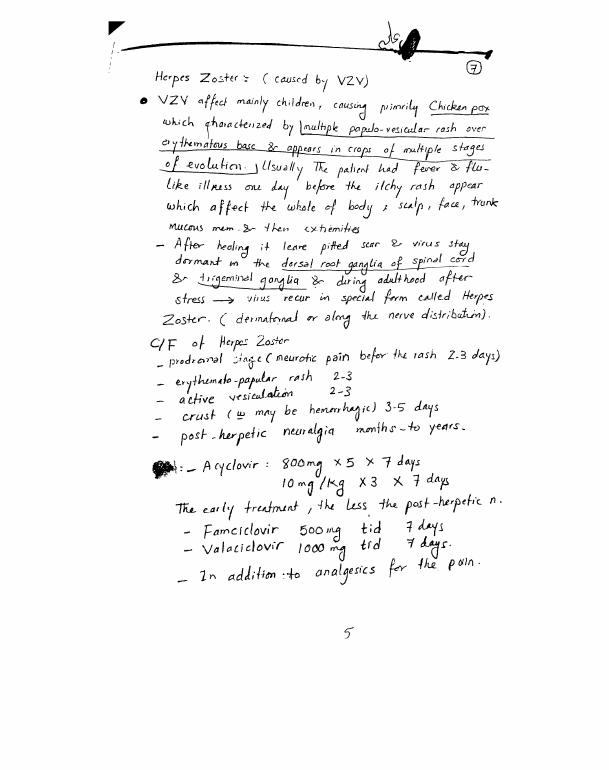 7
Herpes Zoster : ( caused by VZV)
• VZV affect mainly children, causing primrily Chicken pox
which characterized by multiple papulo-vesicular rash over
erythematous base & appears in crops of multiple stages
of evolution. Usually The patient had fever & flu-
like illness one day before the itchy rash appear
which affect the whole of body ; scalp, face, trunk
mucous mem. & then extremities
- After healing it leave pitted scar & virus stay
dormant in the dorsal root ganglia of spinal cord
& trigeminal ganglia & during adulthood after
stress → virus recur in special form called Herpes
Zoster. ( dermatomal or along the nerve distribution).
C/F of Herpes Zoster
- prodromal stage ( neurotic pain befor the rash 2-3 days)
- erythemato-papular rash 2-3
- active vesiculation 2-3
- crust ( may be hemorrhagic) 3-5 days
- post-herpetic neuralgia months-to years.
:- Acyclovir : 800mg x 5 x 7 days
10 mg/kg x3 x 7 days
The early treatment, the less the post-herpetic n.
- Famciclovir 500mg tid 7 days
- Valaciclovir 1000 mg tid 7 days.
- In addition to analgesics for the pain.
5